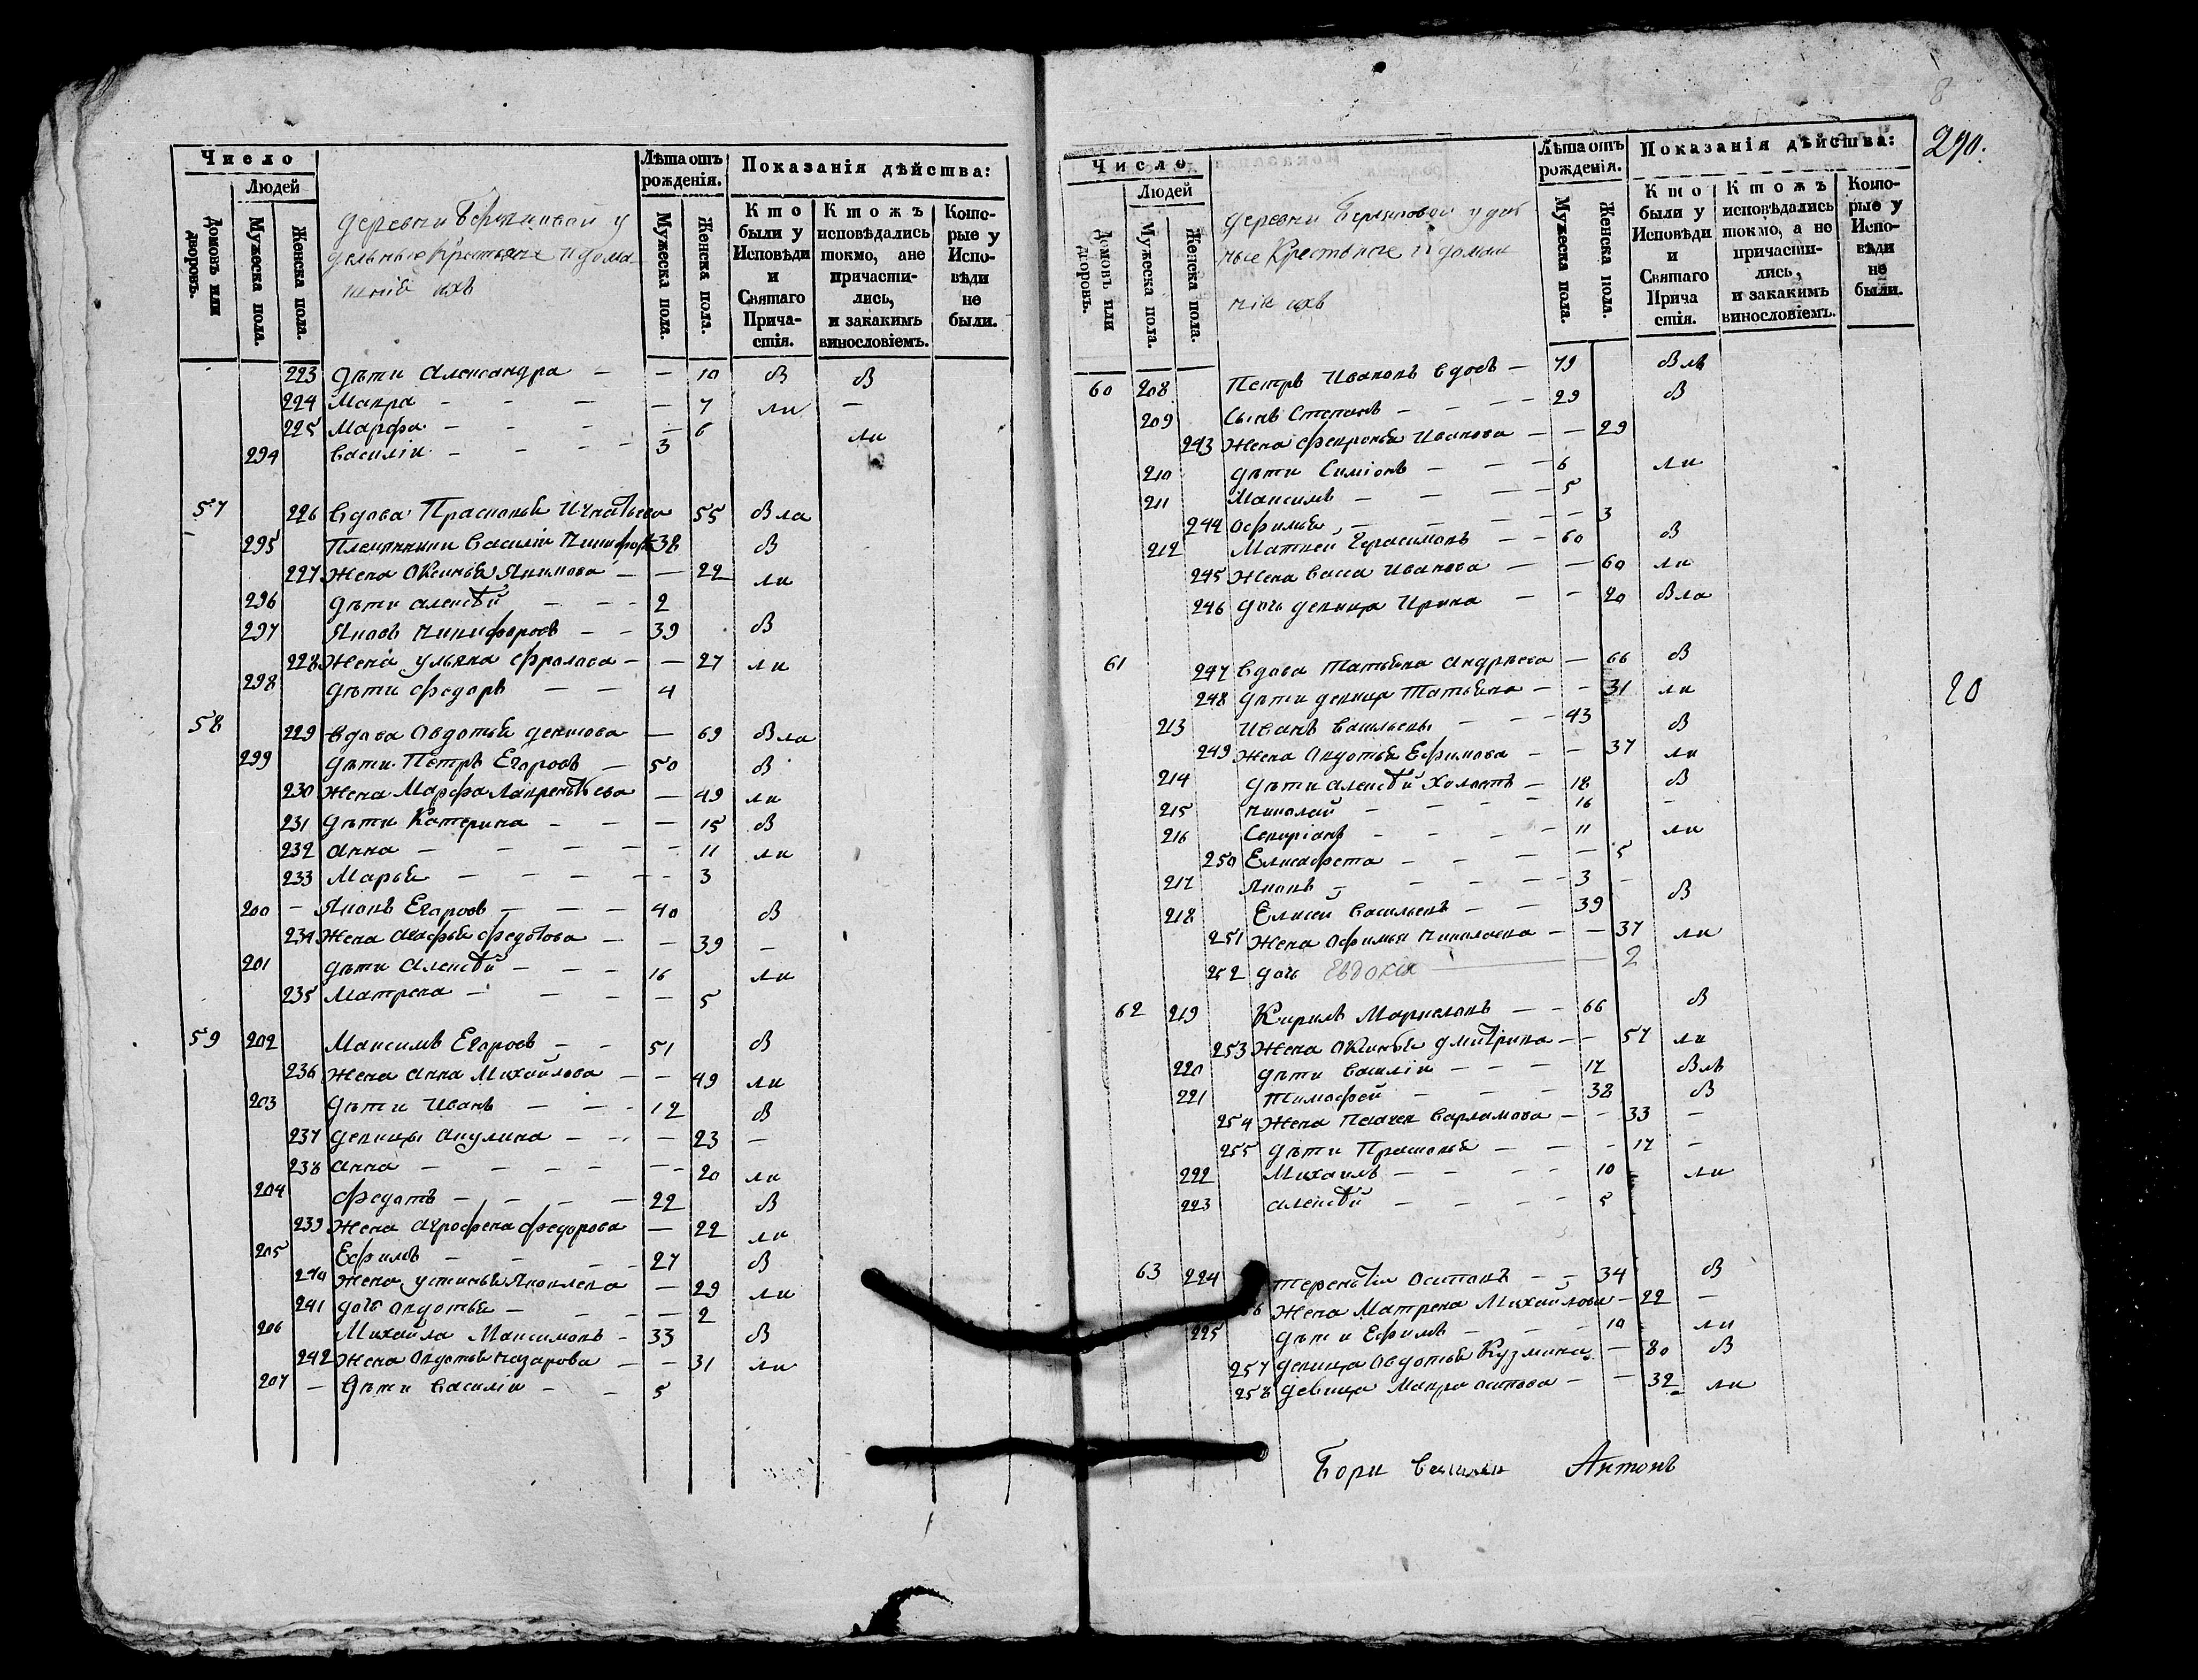 Число
Людей
Домовъ или дворовъ.
Мужеска пола.
Женска пола.
деревни у
дельные Крестьяне и дома
шніе ихъ
Лѣта отъ рожденія.
Мужеска пола.
Женска пола.
Показанія дѣйства:
Кто были у Исповѣди и Святаго Причастія.
Ктожъ исповѣдались токмо, а не причастились, и за какимъ винословіемъ.
Которые у Исповѣди не были.
223 дѣти Александра — — 10 в в
224 Мавра — — — — 7 ли —
225 Марфа — — — — 6 ли
294 василіи — — — 3
57 226 вдова Прасковья Игнатьева 55 вла
295 Племянники василіи Никифоро 38 в
227 Жена Оксинья Якимова — — 22 ли
296 дѣти алексѣй — — 2
297 Яковъ никифоровъ — — 39 в
228 Жена ульяна фролова — — 27 ли
298 дѣти федоръ — — 4
58 229 вдова Авдотья денисова — 69 вла
299 дѣти Петръ Егоровъ — 50 в
230 Жена Марфа Лаврентьева — 49 ли
231 дѣти Катерина — — — 15 в
232 анна — — — — 11 ли
233 Марья — — — — 3
200 — Яковъ Егоровъ — — — 40 в
234 Жена агафья федотова — — 39 —
201 дѣти Алексѣй — — — 16 ли
235 Матрена — — — — 5
59 202 Максимъ Егоровъ — — 51 в
236 Жена анна Михайлова — — 49 ли
203 дѣти Иванъ — — — 12 в
237 девицы акулина — — — 23 —
238 анна — — — — — 20 ли
204 федотъ — — — — 22 в
239 Жена аграфена федорова — 22 ли
205 Ефимъ — — — — 27 в
240 Жена устинья Яковлева — 29 ли
241 дочь авдотья — — — — 2
206 Михайла Максимовъ — 33 в
242 Жена авдотья назарова — — 31 ли
207 — дѣти василіи — — 5
290.
Число
Людей
Домовъ или дворовъ.
Мужеска пола.
Женска пола.
деревни удѣл
ные Крестьяне и домаш
ніе ихъ
Лѣта отъ рожденія.
Мужеска пола.
Женска пола.
Показанія дѣйства:
Кто были у Исповѣди и Святаго Причастія.
Ктожъ исповѣдались токмо, а не причастились, и за какимъ винословіемъ.
Которые у Исповѣди не были.
60 208 Петръ Ивановъ вдовъ — 79 влъ
209 Сынъ Степанъ — — — 29 в
243 Жена февронья Иванова — — 29
210 дѣти Симіонъ — — — 6 ли
211 Максимъ — — — 5
244 афимья — — — — 3
212 Матвей Герасимовъ — — 60 в
245 Жена васса Иванова — — 60 ли
246 дочь девица Ирина — — 20 вла
61 247 вдова Татьяна андрѣева — 66 в
248 дѣти девица Татьяна — — 31 ли
20
213 Иванъ васильевъ — — — 43 в
249 Жена Авдотья Ефимова — — 37 ли
214 дѣти алексѣй холостъ — 18 в
215 николай — — — — 16 —
216 Севиріанъ — — — — 11 ли
250 Елисафета — — — — 5
217 Яковъ — — — — 3 —
218 Елисей васильевъ — — 39 в
251 Жена афимья николаева — — 37 ли
252 дочь Евдокія — 2
62 219 Кирилъ Маркеловъ — — 66 в
253 Жена Оксинья дмитрива — — 57 ли
220 дѣти василіи — — — 17 влъ
221 тимофей — — — 38 в
254 Жена варламова — — 33 —
255 дѣти Прасковья — — — 17 —
222 Михаилъ — — — — 10 ли
223 алексѣй — — — — 5
63 224 терентіи осиповъ — — 34 в
Жена Матрена Михайлова — 22 —
225 дѣти Ефимъ — — — 10 ли
257 девица Авдотья Кузмина — 80 в
258 девица Мавра осипова — — 32 ли
васили Антонъ